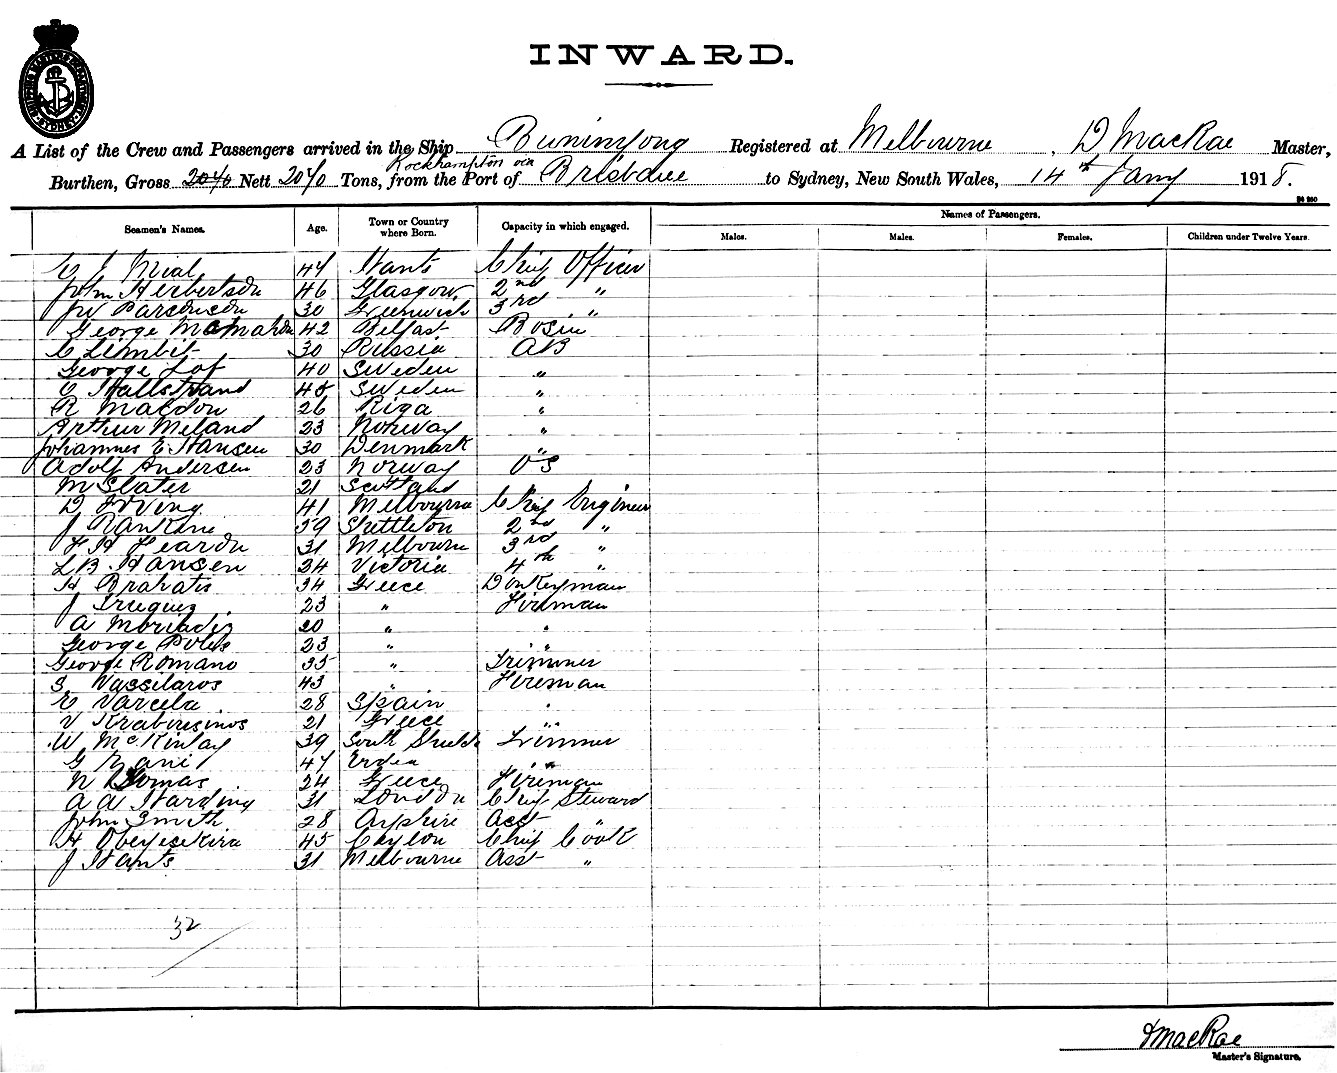 SHIPPING MASTERS DEPARTMENT SYDNEY
INWARD.
A List of the Crew and Passengers arrived in the Ship Buninyong Registered at Melbourne, D MacRae Master,
Rockhampton via
Burthen, Gross 2070 Nett 2070 Tons, from the Port of Brisbane to Sydney, New South Wales, 14th Jany 1918.
Names of Passengers.
Seamen's Names. Age. Town or Country where Born. Capacity in which engaged. Males. Males. Females. Children under Twelve Years.
44 Hants Chief Officer
John Herbertson 46 Glasgow 2nd "
30 Greenwich 3rd "
George McMahon 42 Belfast Bosin
C Limbit 30 Russia AB
George Lof 40 Sweden "
C Hallstrand 45 Sweden "
R Maldon 26 Riga "
Arthur Meland 23 Norway "
Johannes E. Hansen 30 Denmark "
Adolf Andersen 23 Norway OS
M Slater 21 Scotland
D Irving 41 Melbourne Chief Engineer
J Rankine 59 Shettleton 2nd "
31 Melbourne 3rd "
L B Hansen 34 Victoria 4th "
H Brahatis 34 Greece Donkeyman
J 23 " Fireman
A 20 " "
George Poles 23 " "
George Romano 35 " Trimmer
S. Vassilaros 43 " Fireman
E Varcela 28 Spain "
V Krabousinos 21 Greece "
W McKinlay 39 South Shields Trimmer
G 47 "
N Tsomas 24 Greece Fireman
A A Harding 31 London Chief Steward
John Smith 28 Ayrshire Asst "
H Obeyesekira 45 Ceylon Chief Cook
J Hants 31 Melbourne Asst "
32
D MacRae
Master's Signature.